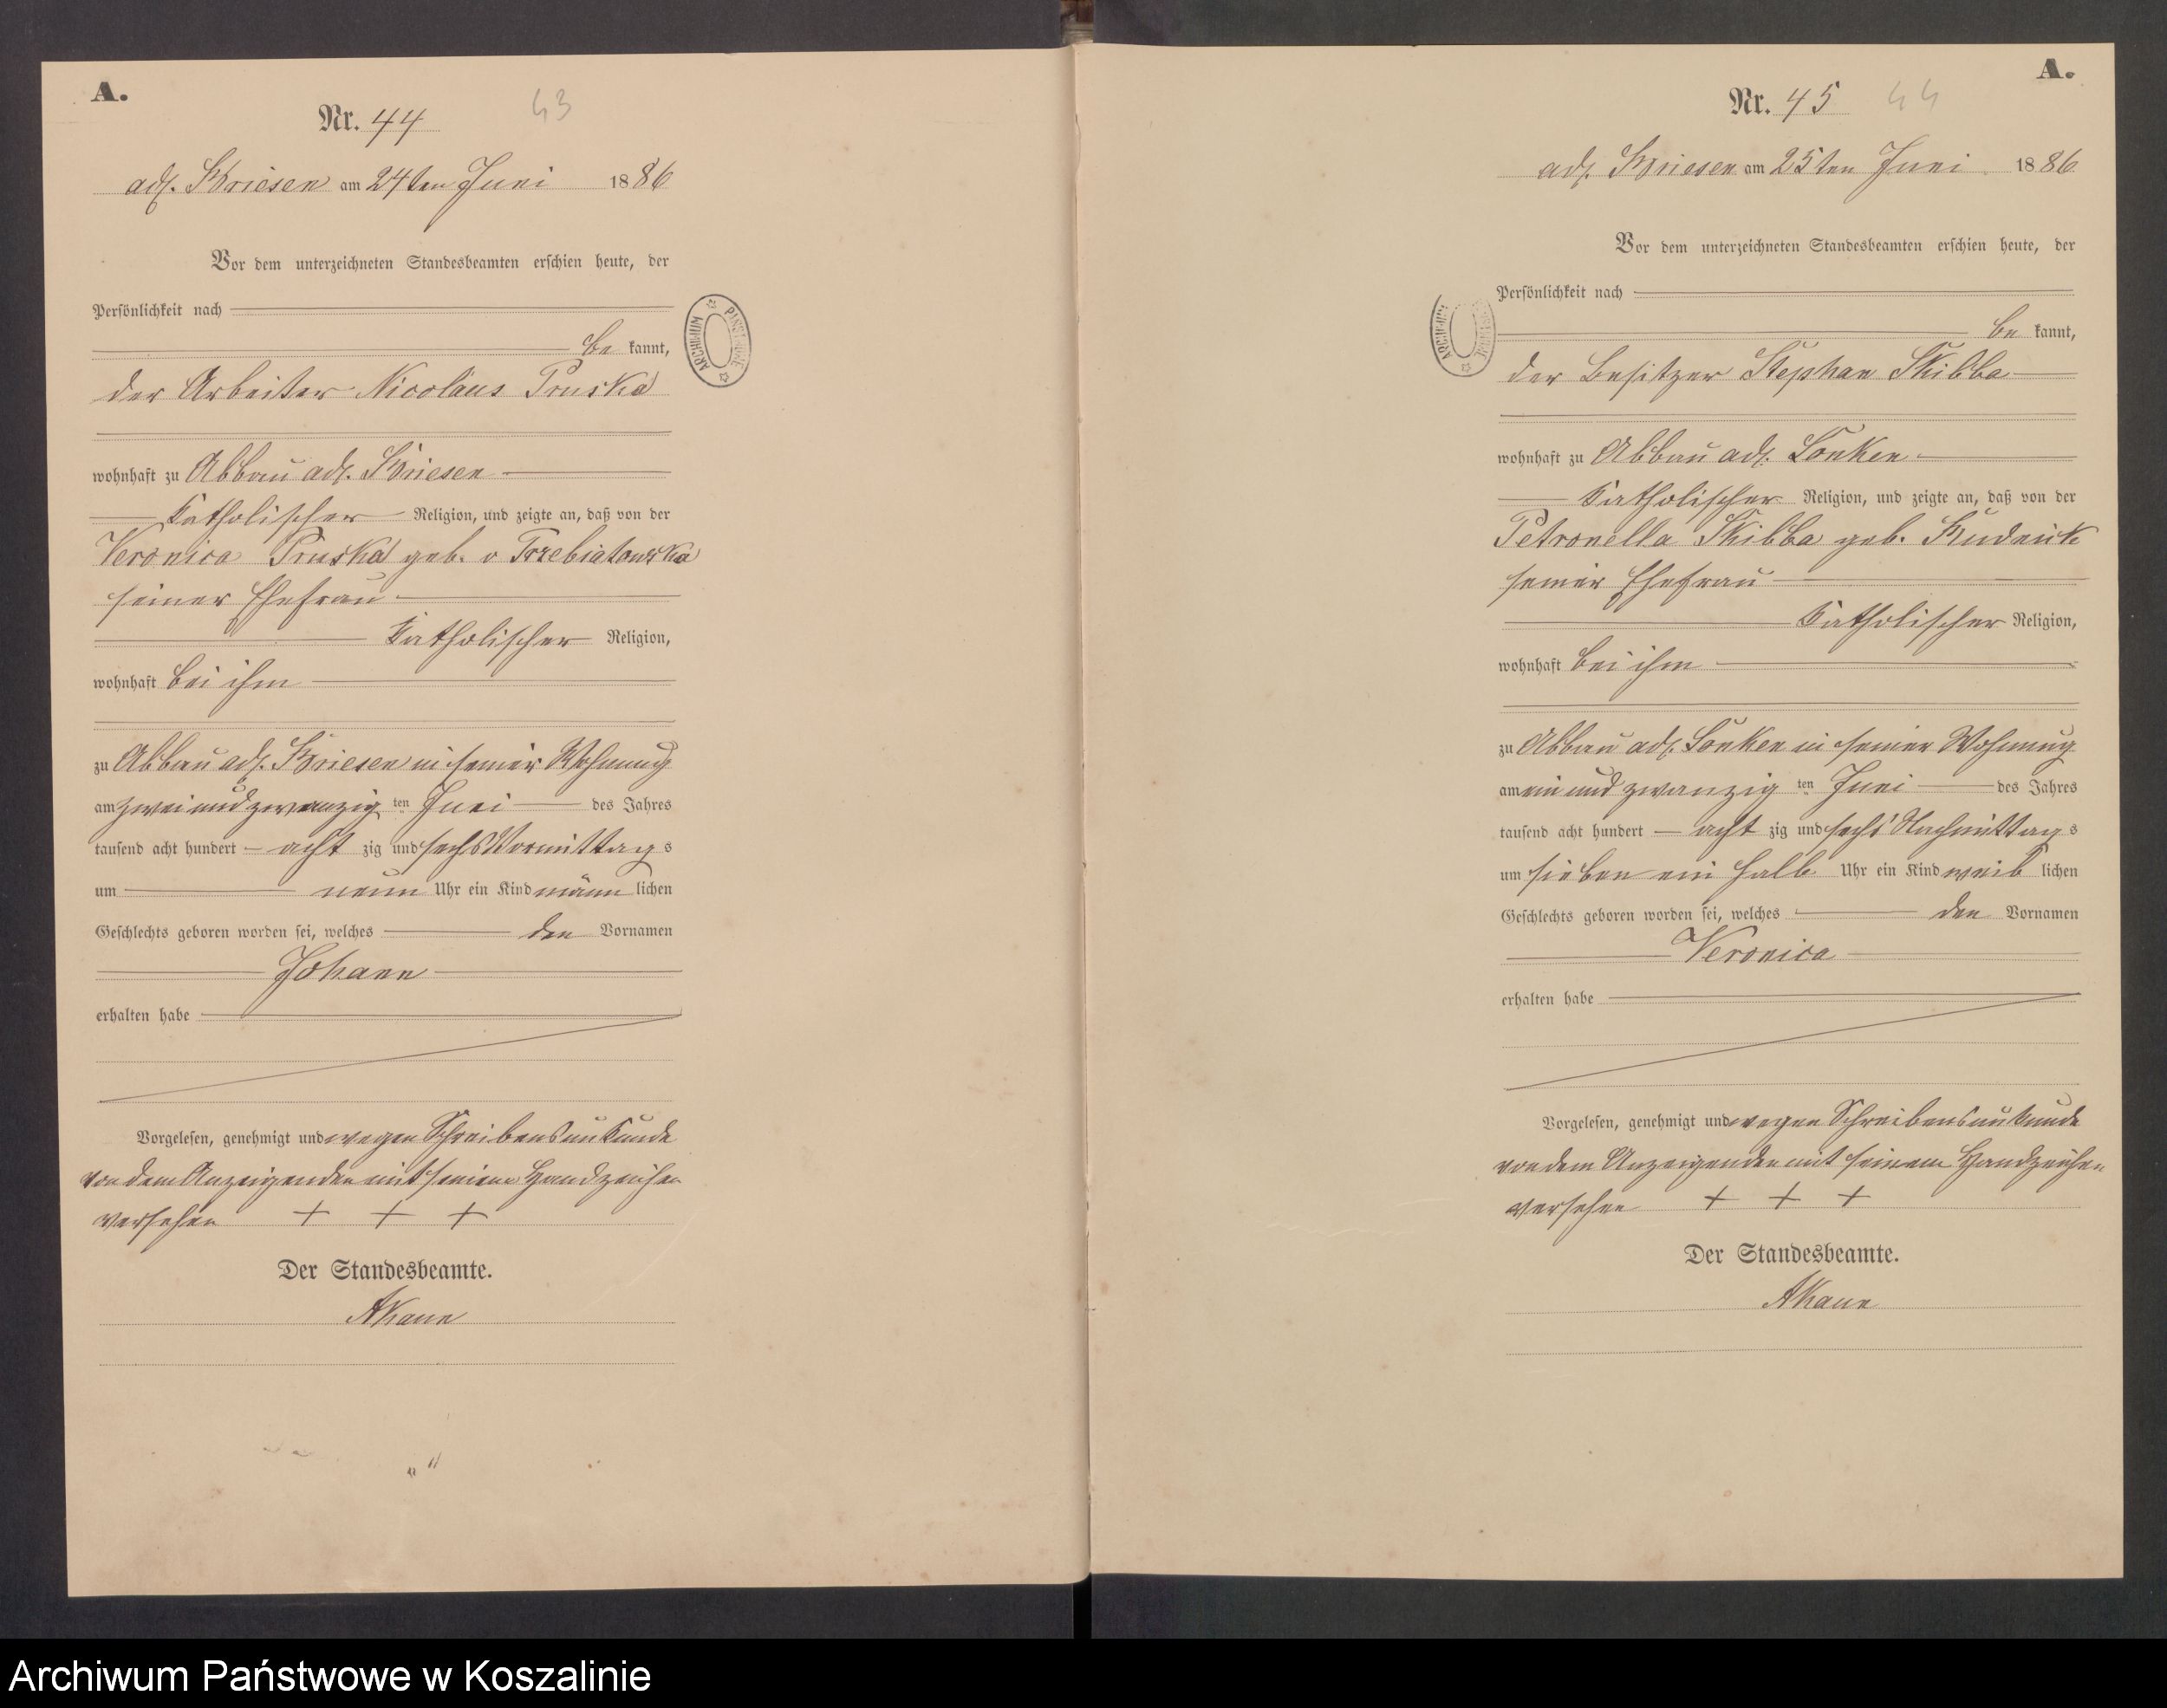 A.
Nr. 44
43
adl. Briesen am 24ten Juni 1886
Vor dem unterzeichneten Standesbeamten erschien heute, der
Persönlichkeit nach
be kannt,
der Arbeiter Nicolaus Pruska
wohnhaft zu Abbau adl. Briesen
katholischer Religion, und zeigte an, daß von der
Veronica Pruska geb. v Trzebiatowska
seiner Ehefrau
katholischer Religion,
wohnhaft bei ihm
zu Abbau adl. Briesen in seiner Wohnung
am zwei und zwanzig ten Juni des Jahres
tausend acht hundert acht zig und sechs Vormittags
um neun Uhr ein Kind männ lichen
Geschlechts geboren worden sei, welches den Vornamen
Johann
erhalten habe
Vorgelesen, genehmigt und wegen Schreibensunkunde
von dem Anzeigenden mit seinem Handzeichen
versehen + + +
Der Standesbeamte.
AKaun
ARCHIWUM PAŃSTWOWE
A.
Nr. 45
44
adl. Briesen am 25ten Juni 1886
Vor dem unterzeichneten Standesbeamten erschien heute, der
Persönlichkeit nach
be kannt,
der Besitzer Stephan Skibba
wohnhaft zu Abbau adl. Lonken
katholischer Religion, und zeigte an, daß von der
Petronella Skibba geb. Rudnik
seiner Ehefrau
katholischer Religion,
wohnhaft bei ihm
zu Abbau adl. Lonken in seiner Wohnung
am ein und zwanzig ten Juni des Jahres
tausend acht hundert acht zig und sechs Nachmittags
um sieben ein halb Uhr ein Kind weib lichen
Geschlechts geboren worden sei, welches den Vornamen
Veronica
erhalten habe
Vorgelesen, genehmigt und wegen Schreibensunkunde
von dem Anzeigenden mit seinem Handzeichen
versehen + + +
Der Standesbeamte.
AKaun
Archiwum Państwowe w Koszalinie